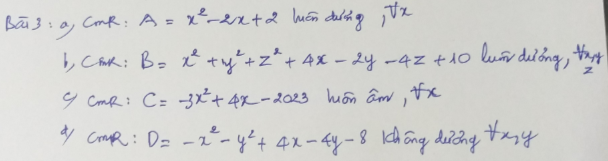 Bài 3: a, CmR: A = x² - 2x + 2 luôn dương, ∀x
b, CmR: B = x² + y² + z² + 4x - 2y - 4z + 10 luôn dương, ∀x,y,z
c, CmR: C = -3x² + 4x - 2023 luôn âm, ∀x
d, CmR: D = -x² - y² + 4x - 4y - 8 không dương ∀x,y